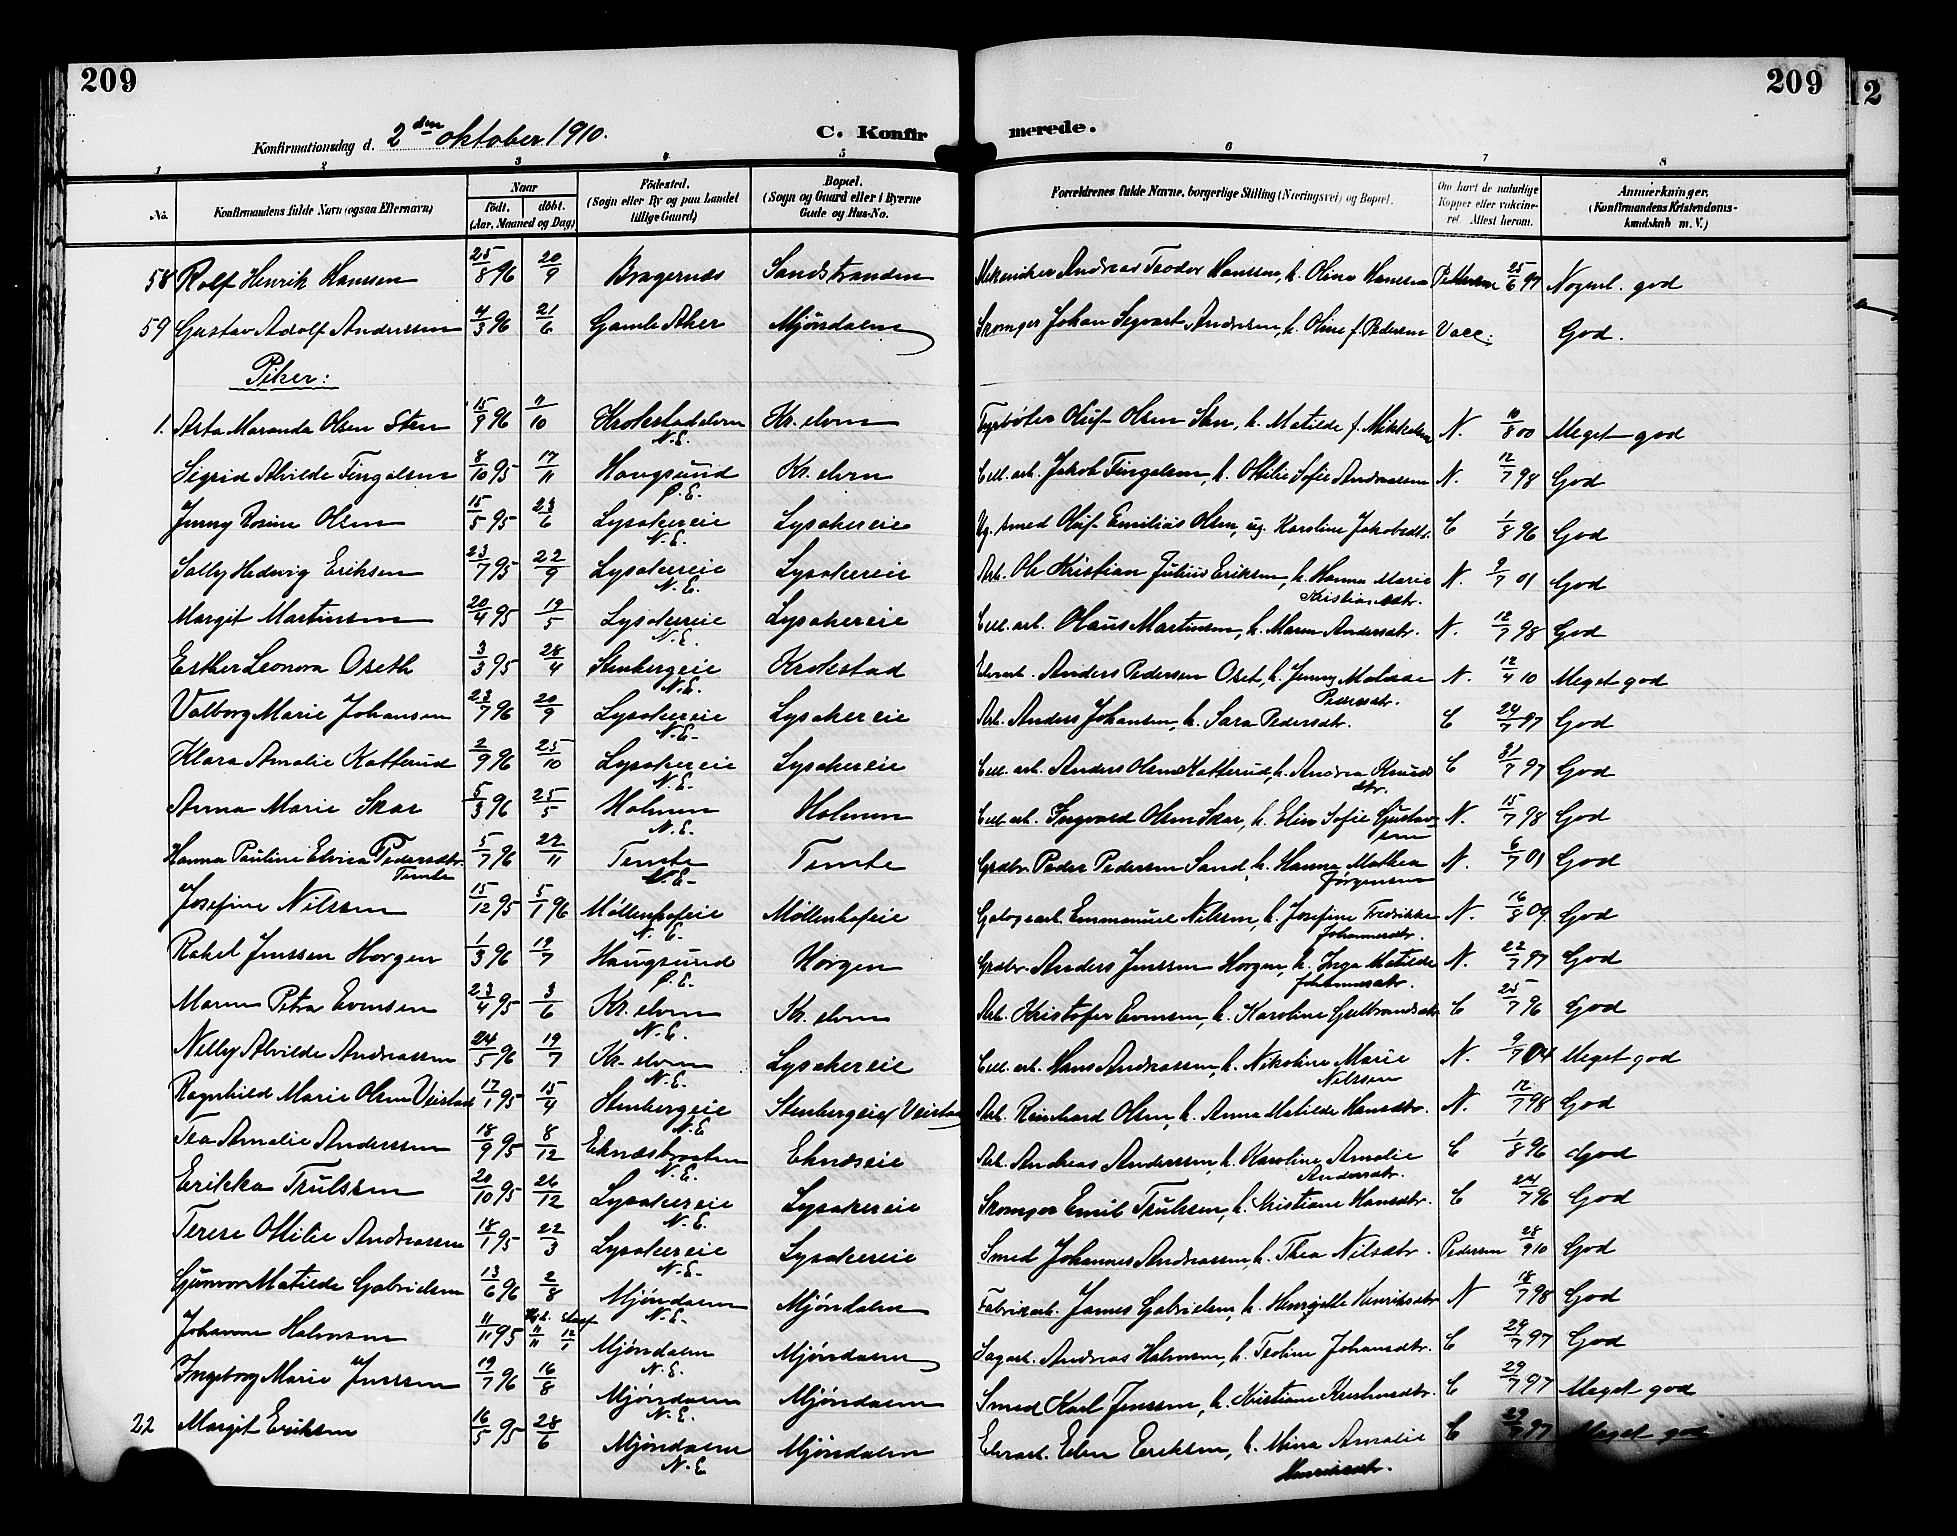 209
209
12
Konfirmationsdag d. 2den oktober 1910.
C. Konfirmerede.
1 2 3 4 5 6 7 8
No.
Konfirmandens fulde Navn (ogsaa Efternavn)
Naar
födt. döbt.
(Aar, Maaned og Dag)
Födested.
(Sogn eller By og paa Landet
tillige Gaard)
Bopæl.
(Sogn og Gaard eller i Byerne
Gade og Hus-No.
Forældrenes fulde Navne, borgerlige Stilling (Næringsvei) og Bopæl.
Om havt de naturlige
Kopper eller vakcine-
ret. Attest herom.
Anmærkninger.
(Konfirmandens Kristendoms-
kundskab m. V.)
58 Rolf Henrik Hanssen 25/8 96 20/9 Bragernes Sandstranden Mekaniker Andreas Teodor Hanssen, h. Oline Hanssen Pettersen 25/6 97 Nogenl. god
59 Gustav Adolf Anderssen 4/3 96 21/6 Gamle Aker Mjöndalen Skomager Johan Segvart Andersen, h. Oline f. Pedersen Vacc. God.
Piker:
1. Asta Maranda Olsen Sten 15/9 96 11/10 Krokestadelven N.E. Kr. elven Fyrböter Oluf Olsen Sten, h. Matilde f. Mikkelsen N. 10/8 00 Meget god
Sigrid Alvilde Fingalsen 8/10 95 17/11 Hougsund Ö.E. Kr. elven Cell. arb. Jakob Fingalsen, h. Ottilie Sofie Andreassen N. 12/7 98 God
Jenny Rosine Olsen 15/5 95 23/6 Lysakereie N.E. Lysakereie Ug. smed Oluf Emilius Olsen, ug. Karoline Jakobsdtr. C 1/8 96 God
Solly Hedvig Eriksen 23/7 95 22/9 Lysakereie N.E. Lysakereie Arb. Ole Kristian Julius Eriksen, h. Hanna Marie Kristiansdtr. N. 9/7 01 God
Margit Martinsen 20/4 95 19/5 Lysakereie N.E. Lysakereie Cell. arb. Olaus Martinsen, h. Maren Andersdtr. N. 12/7 98 God
Esther Leonora Oseth 3/3 95 28/4 Stenbergeie N.E. Krokestad Elvearb. Anders Pedersen Oset, h. Jenny Malene Pedersdtr. N. 12/4 10 Meget god
Valborg Marie Johansen 23/7 96 20/9 Lysakereie N.E. Lysakereie Arb. Anders Johansen, h. Sara Pedersdtr. C 24/7 97 God
Klara Amalie Katterud 2/9 96 25/10 Lysakereie N.E. Lysakereie Cell. arb. Anders Olsen Katterud, h. Andrea Knudsdtr. C 31/7 97 God
Anna Marie Skar 5/3 96 25/5 Holmen N.E. Holmen Cell. arb. Ingvald Olsen Skar, h. Elise Sofie Gustavsen N. 15/7 98 God
Hanna Pauline Elvira Pedersdtr. Temte 5/7 96 22/11 Temte N.E. Temte Grdbr. Peder Pedersen Sand, h. Hanna Mathea Jørgensen N. 6/7 01 God
Josefine Nilssen 15/12 95 5/1 96 Møllenhofeie N.E. Møllenhofeie Galogearb. Emmanuel Nilssen, h. Josefine Fredrikke Johannesdtr. N. 16/8 09 God
Rakel Jenssen Horgen 1/3 96 19/7 Haugsund Ö.E. Horgen Grdbr. Anders Jenssen Horgen, h. Inga Matilde Johannesdtr. N. 22/7 97 God
Maren Petra Evensen 23/4 95 3/6 Kr. elven N.E. Kr. elven Arb. Kristofer Evensen, h. Karoline Gulbrandsdtr C 25/7 96 God
Nelly Alvilde Andreassen 24/5 96 19/7 Kr. elven N.E. Lysakereie Cell. arb. Hans Andreassen, h. Nikoline Marie Nilssen N. 9/7 04 Meget god
Ragnhild Marie Olsen Veistad 17/1 95 15/4 Stenbergeie N.E Stenbergeie/Veistad Arb. Reinhard Olsen, h. Anna Matilde Hansdtr. N. 12/7 98 God
Tea Amalie Anderssen 18/9 95 8/12 Eknesbraaten N.E. Ekneseie Arb. Andreas Anderssen, h. Karoline Amalie Andersdtr. C 1/8 96 God
Erikka Trulssen 20/10 95 26/12 Lysakereie N.E. Lysakereie Skomager Emil Trulssen, h. Kristiane Hansdtr. C 24/7 96 God
Terese Ottilie Andreassen 18/1 95 22/3 Lysakereie N.E. Lysakereie Smed Johannes Andreassen, h. Thea Nilsdtr. Pedersen 28/9 10 God
Gunvor Matilde Gabrielsen 13/6 96 2/8 Mjöndalen N.E. Mjöndalen Fabrikarb. James Gabrielsen, h. Henrijette Henriksdtr N 18/7 98 God
Johanne Halvorsen 11/11 95 11/11 12/1 Mjöndalen N.E. Mjöndalen Sagarb. Andreas Halvorsen, h. Teoline Johansdtr. C 29/7 97 God
Ingeborg Marie Jenssen 19/7 96 16/8 Mjöndalen N.E. Mjöndalen Smed Karl Jenssen, h. Kristiane C 29/7 97 Meget god
22 Margit Eriksen 16/5 95 28/6 Mjöndalen N.E Mjöndalen Elvearb. Edvin Eriksen, h. Mina Amalie Henriksdtr. C 29/7 97 Meget god